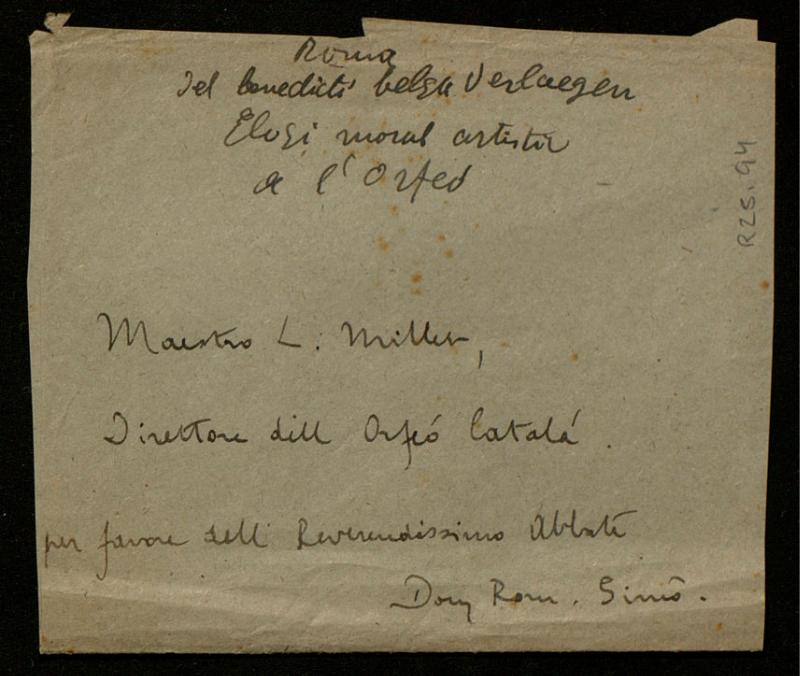 Roma
Del benedictí belga Verlaegen
Elogi moral artístic
a l'Orfeó
R25.94
Maestro L. Millet,
Direttore dell Orfeó Catalá.
per favore dell Reverendissimo Abbate
Dom Rom. Simó.